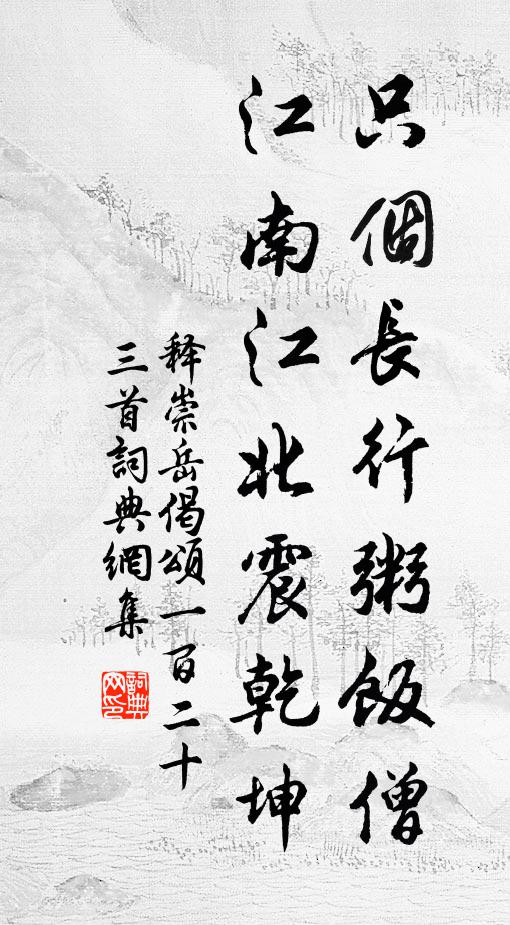 只個長行粥飯僧
江南江北震乾坤
释崇岳偈頌一百二十
三首詞典網集
詞典
网印